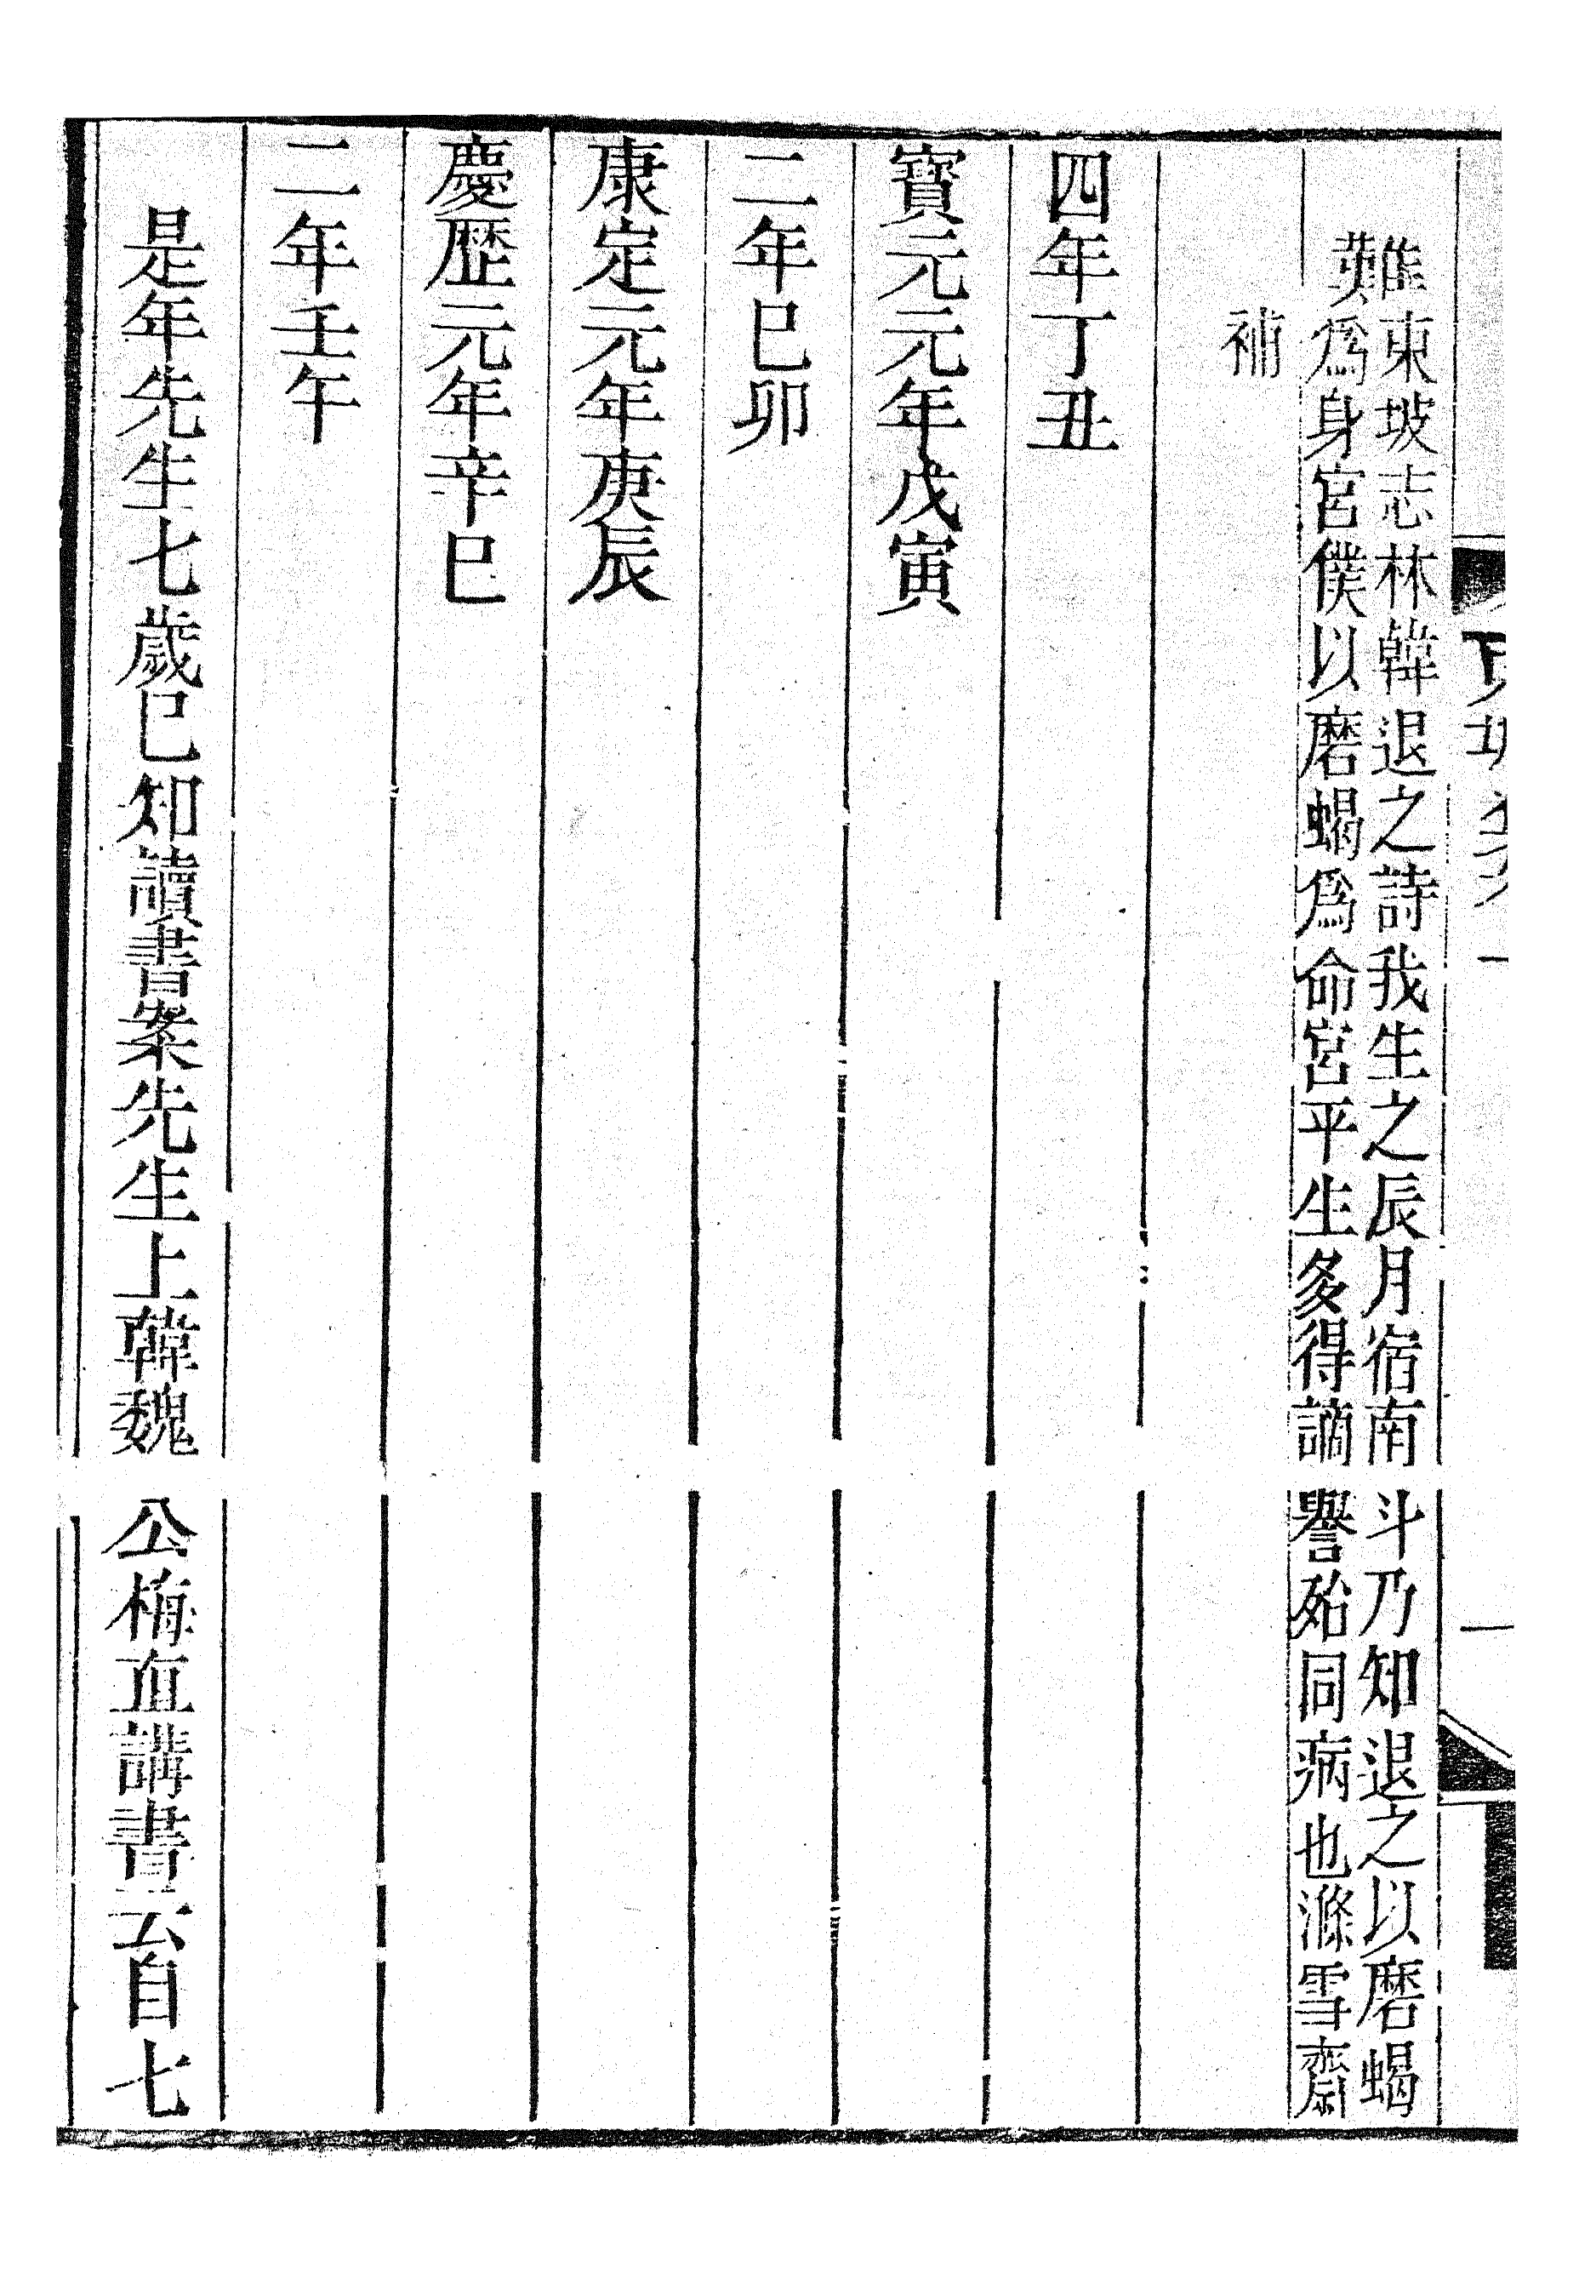 難
東坡志林韓退之詩我生之辰月宿南斗乃知退之以磨蝎
爲身宮僕以磨蝎爲命宮平生多得謫譽殆同病也滌雪齋
補
四年丁丑
寶元元年戊寅
二年巳卯
康定元年庚辰
慶歴元年辛巳
二年壬午
是年先生七歲巳知讀書案先生上韓魏公梅直講書云自七